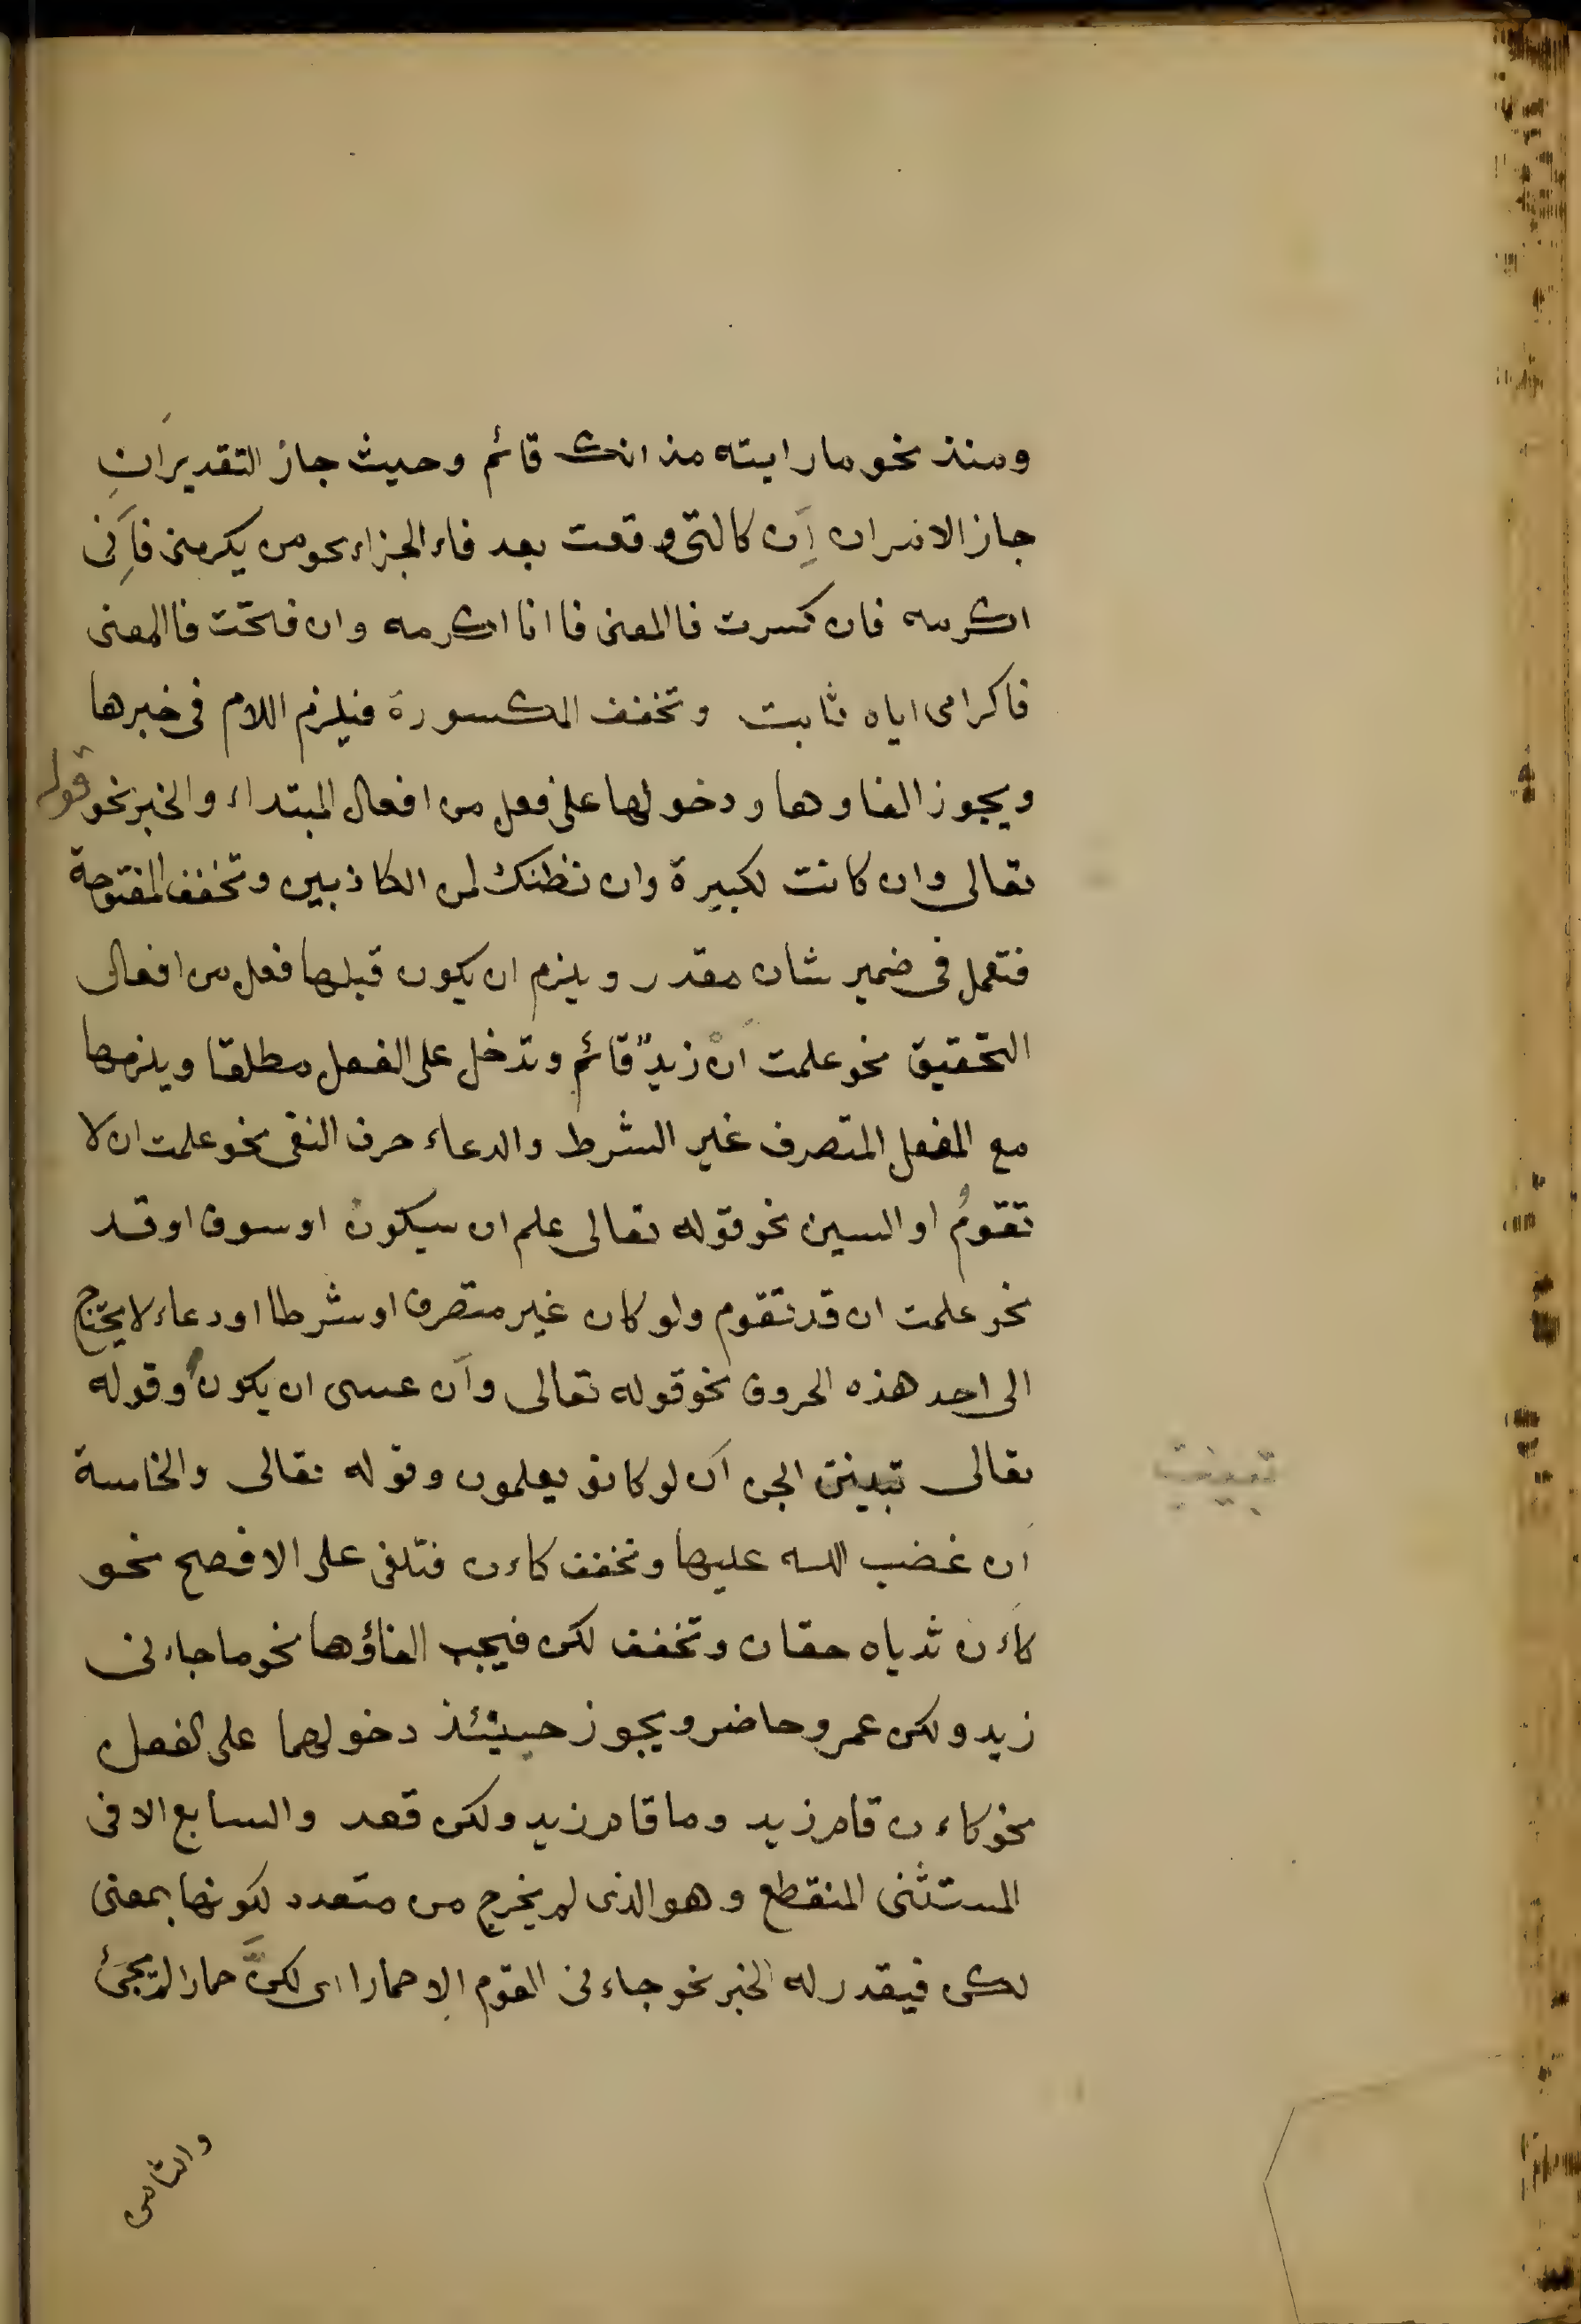 ومنذ نحو ما رايته مذ انك قائم وحيث جاز التقديرانِ
جاز الامران اَِن كالتي وقعت بعد فاء الجزاء نحو من يكرمني فاَِنى
اكرمه فان كسرت فالمعنى فاانا اكرمه وان فتحت فاالمعنى
فاكرامى اياه ثابت وتخفف المكسورة فيلزم اللام فى خبرها
ويجوز الغاوها ودخولها على فعل من افعال المبتداء والخبر نحو قوله
تعالى وان كانت لكبيرة وان نظنك لمن الكاذبين وتخفف المفتوحة
فتعمل فى ضمير شان مقدر ويلزم ان يكون قبلها فعل من افعال
التحقيق نحو علمت اَنْ زيدٌ قائم وتدخل على الفعل مطلقا ويلزمها
مع الفعل المتصرف غير الشرط والدعاء حرف النفى نحو علمت ان لا
تقومُ او السين نحو قوله تعالى علم ان سيكون او سوف او قد
نحو علمت ان قد تقوم ولو كان غير متصرف او شرطا او دعاء لا يحتاج
الى احد هذه الحروف نحو قوله تعالى واَن عسى ان يكون وقوله
تعالى تبينت الجن اَن لو كانو يعلمون وقوله تعالى والخامسة
تبينت
اَن غضب الله عليها وتخفف كاءن فتلغى على الافصح نحو
كاَءن ثدياه حقان وتخفف لكن فيجب الغاؤها نحو ما جاءنى
زيد ولكن عمرو حاضر ويجوز حينئذ دخولهما على الفعل
نحو كاءن قام زيد وما قام زيد ولكن قعد والسابع الا فى
المستثنى المنقطع وهو الذى لم يخرج من متعدد لكونها بمعنى
لكن فيقدر له الخبر نحو جاءنى القوم الا حمارا اى لكنَّ حمارا لم يجئ
والثامن